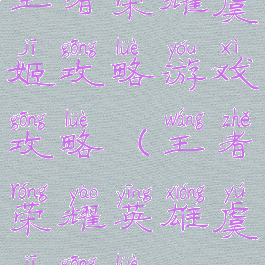 王者荣耀虞
jī gōng luè yóu xì
姬攻略游戏
gōng luè wáng zhě
攻略（王者
róng yào yīng xióng yú
荣耀英雄虞
jī gōng luè